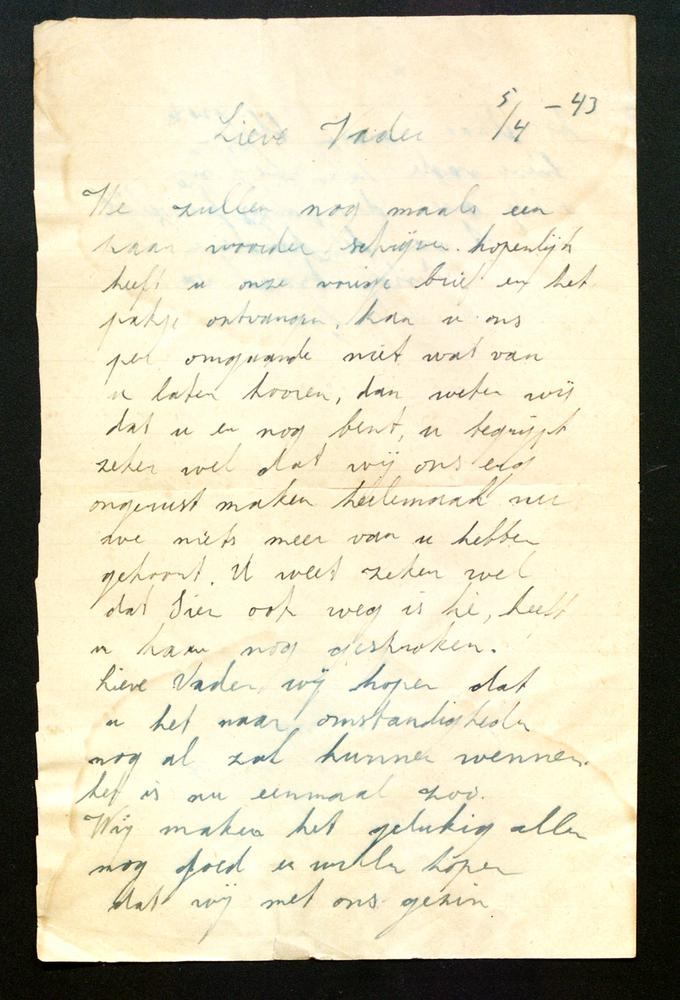 5/4 - 43
Lieve Vader
We zullen nog maals een
paar woorden schrijven. hopenlijk
heeft u onze vorige brief en het
pakje ontvangen, kan u ons
per omgaande niet wat van
u laten hooren, dan weten wij
dat u er nog bent, u begrijpt
zeker wel dat wij ons erg
ongerust maken heelemaal nu
we niets meer van u hebben
gehoort. U weet zeker wel
dat Sien ook weg is hé, heeft
u haar nog gesproken.
Lieve Vader wij hopen dat
u het naar omstandigheden
nog al zal kunnen wennen.
het is nu eenmaal zoo.
Wij maken het gelukig allen
nog goed en willen hopen
dat wij met ons gezin